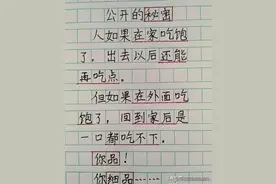 公开的秘密
人如果在家吃饱
了，出去以后还能
再吃点。
但如果在外面吃
饱了，回到家后是
一口都吃不下。
你品！
你细品……